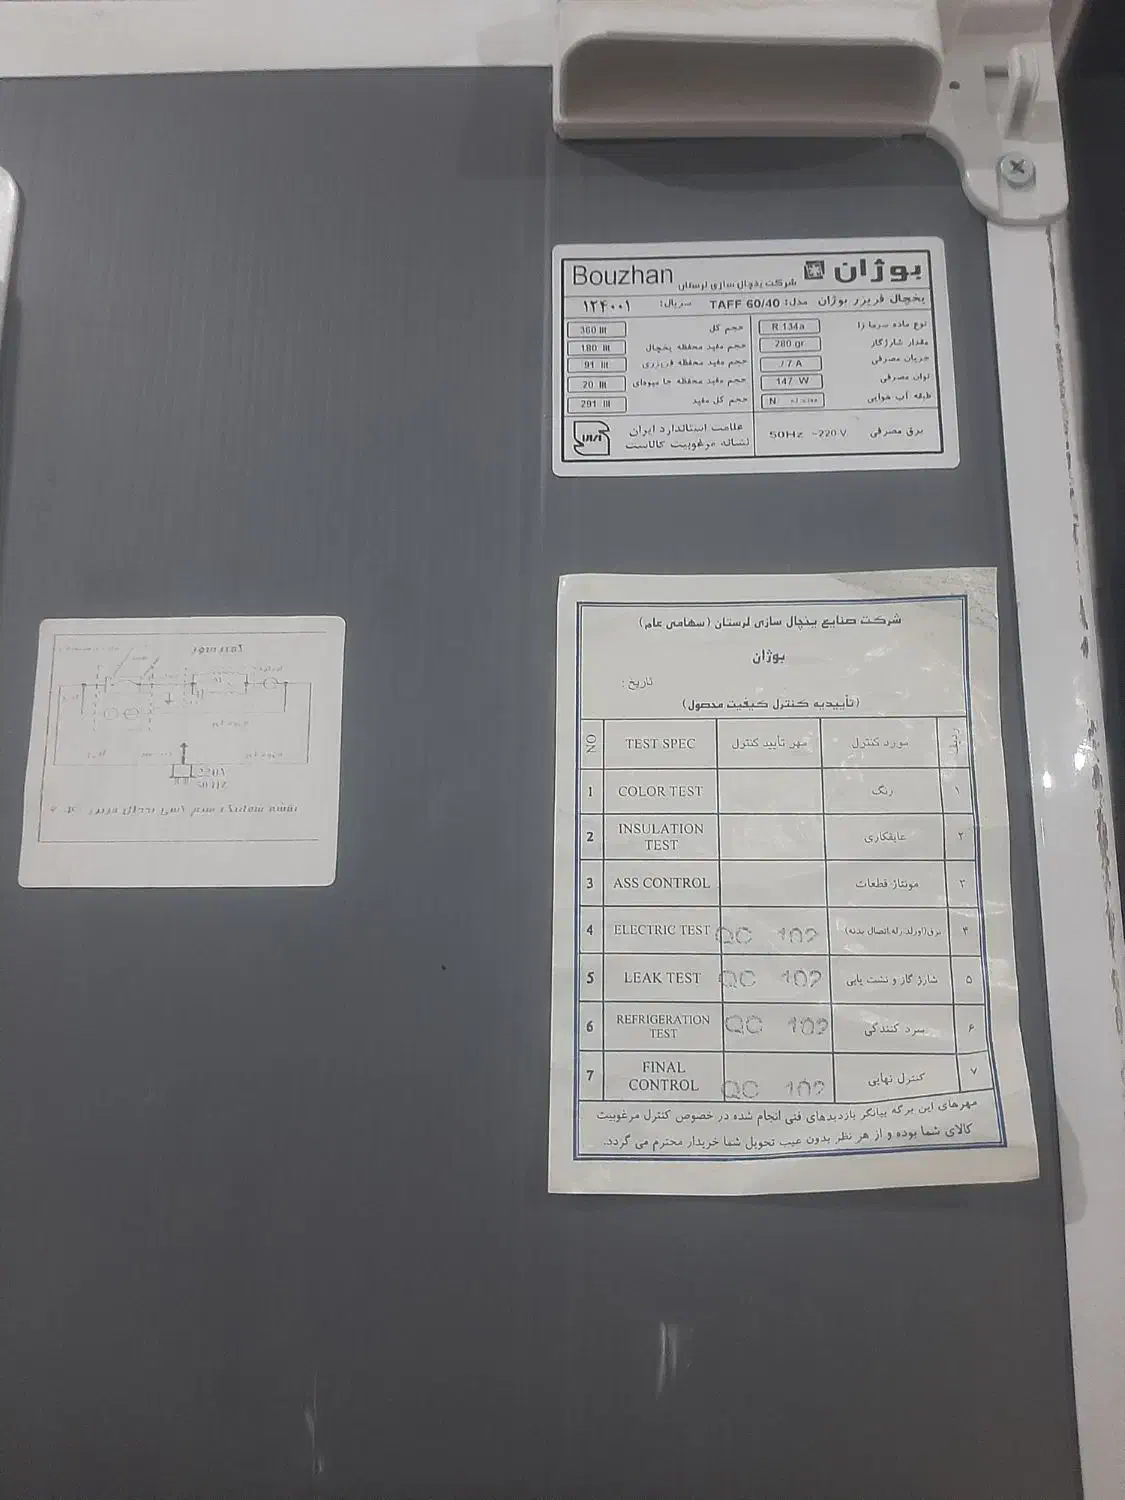 Bouzhan شرکت یخچال سازی لرستان بوژان
یخچال فریزر بوژان مدل: TAFF 60/40 سریال: ۱۲۴۰۰۱
نوع ماده سرما زا R 134a حجم کل 360 lit
مقدار شارژ گاز 280 gr حجم مفید محفظه یخچال 180 lit
جریان مصرفی /7 A حجم مفید محفظه فریزری 91 lit
توان مصرفی 147 W حجم مفید محفظه جا میوه‌ای 20 lit
طبقه آب هوایی N حجم کل مفید 291 lit
برق مصرفی 50Hz ~220 V
علامت استاندارد ایران
نشانه مرغوبیت کالاست
شرکت صنایع یخچال سازی لرستان (سهامی عام)
بوژان
تاریخ:
(تأییدیه کنترل کیفیت محصول)
NO TEST SPEC مهر تأیید کنترل مورد کنترل ردیف
1 COLOR TEST رنگ ۱
2 INSULATION TEST عایقکاری ۲
3 ASS CONTROL مونتاژ قطعات ۳
4 ELECTRIC TEST QC 102 برق(اورلد،رله،اتصال بدنه) ۴
5 LEAK TEST QC 102 شارژ گاز و نشت یابی ۵
6 REFRIGERATION TEST QC 102 سرد کنندگی ۶
7 FINAL CONTROL QC 102 کنترل نهایی ۷
مهرهای این برگه بیانگر بازدیدهای فنی انجام شده در خصوص کنترل مرغوبیت
کالای شما بوده و از هر نظر بدون عیب تحویل شما خریدار محترم می گردد.